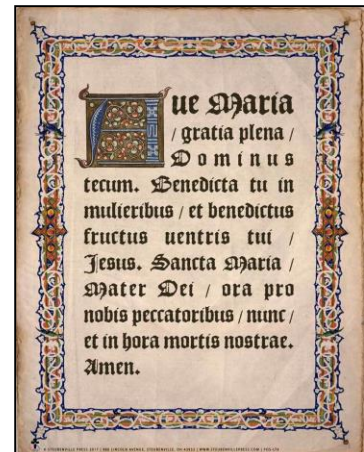 Aue Maria
/ gratia plena /
Dominus
tecum. Benedicta tu in
mulieribus / et benedictus
fructus uentris tui /
Jesus. Sancta Maria /
Mater Dei / ora pro
nobis peccatoribus / nunc /
et in hora mortis nostrae.
Amen.